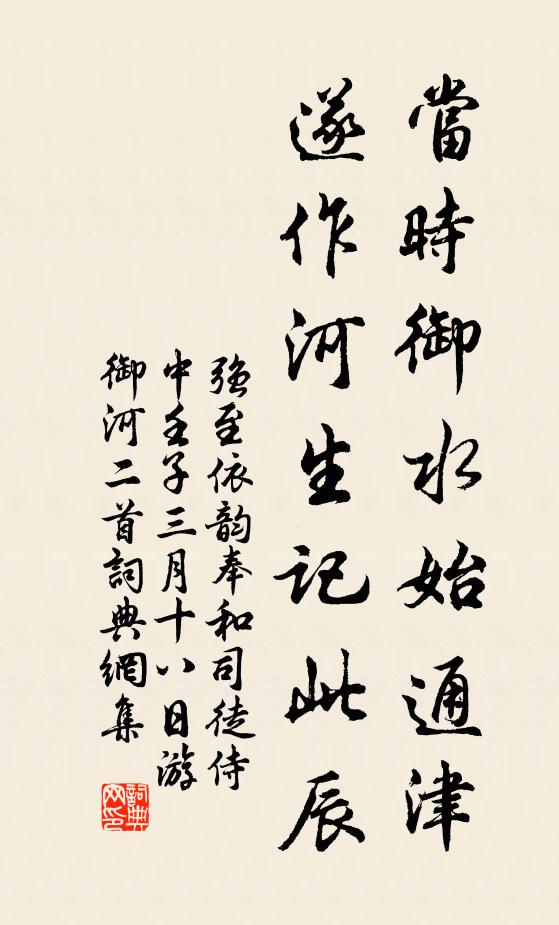 當時御水始通津
遂作河生記此辰
强至依韵奉和司徒侍
中壬子三月十八日游
御河二首詞典網集
詞典网印